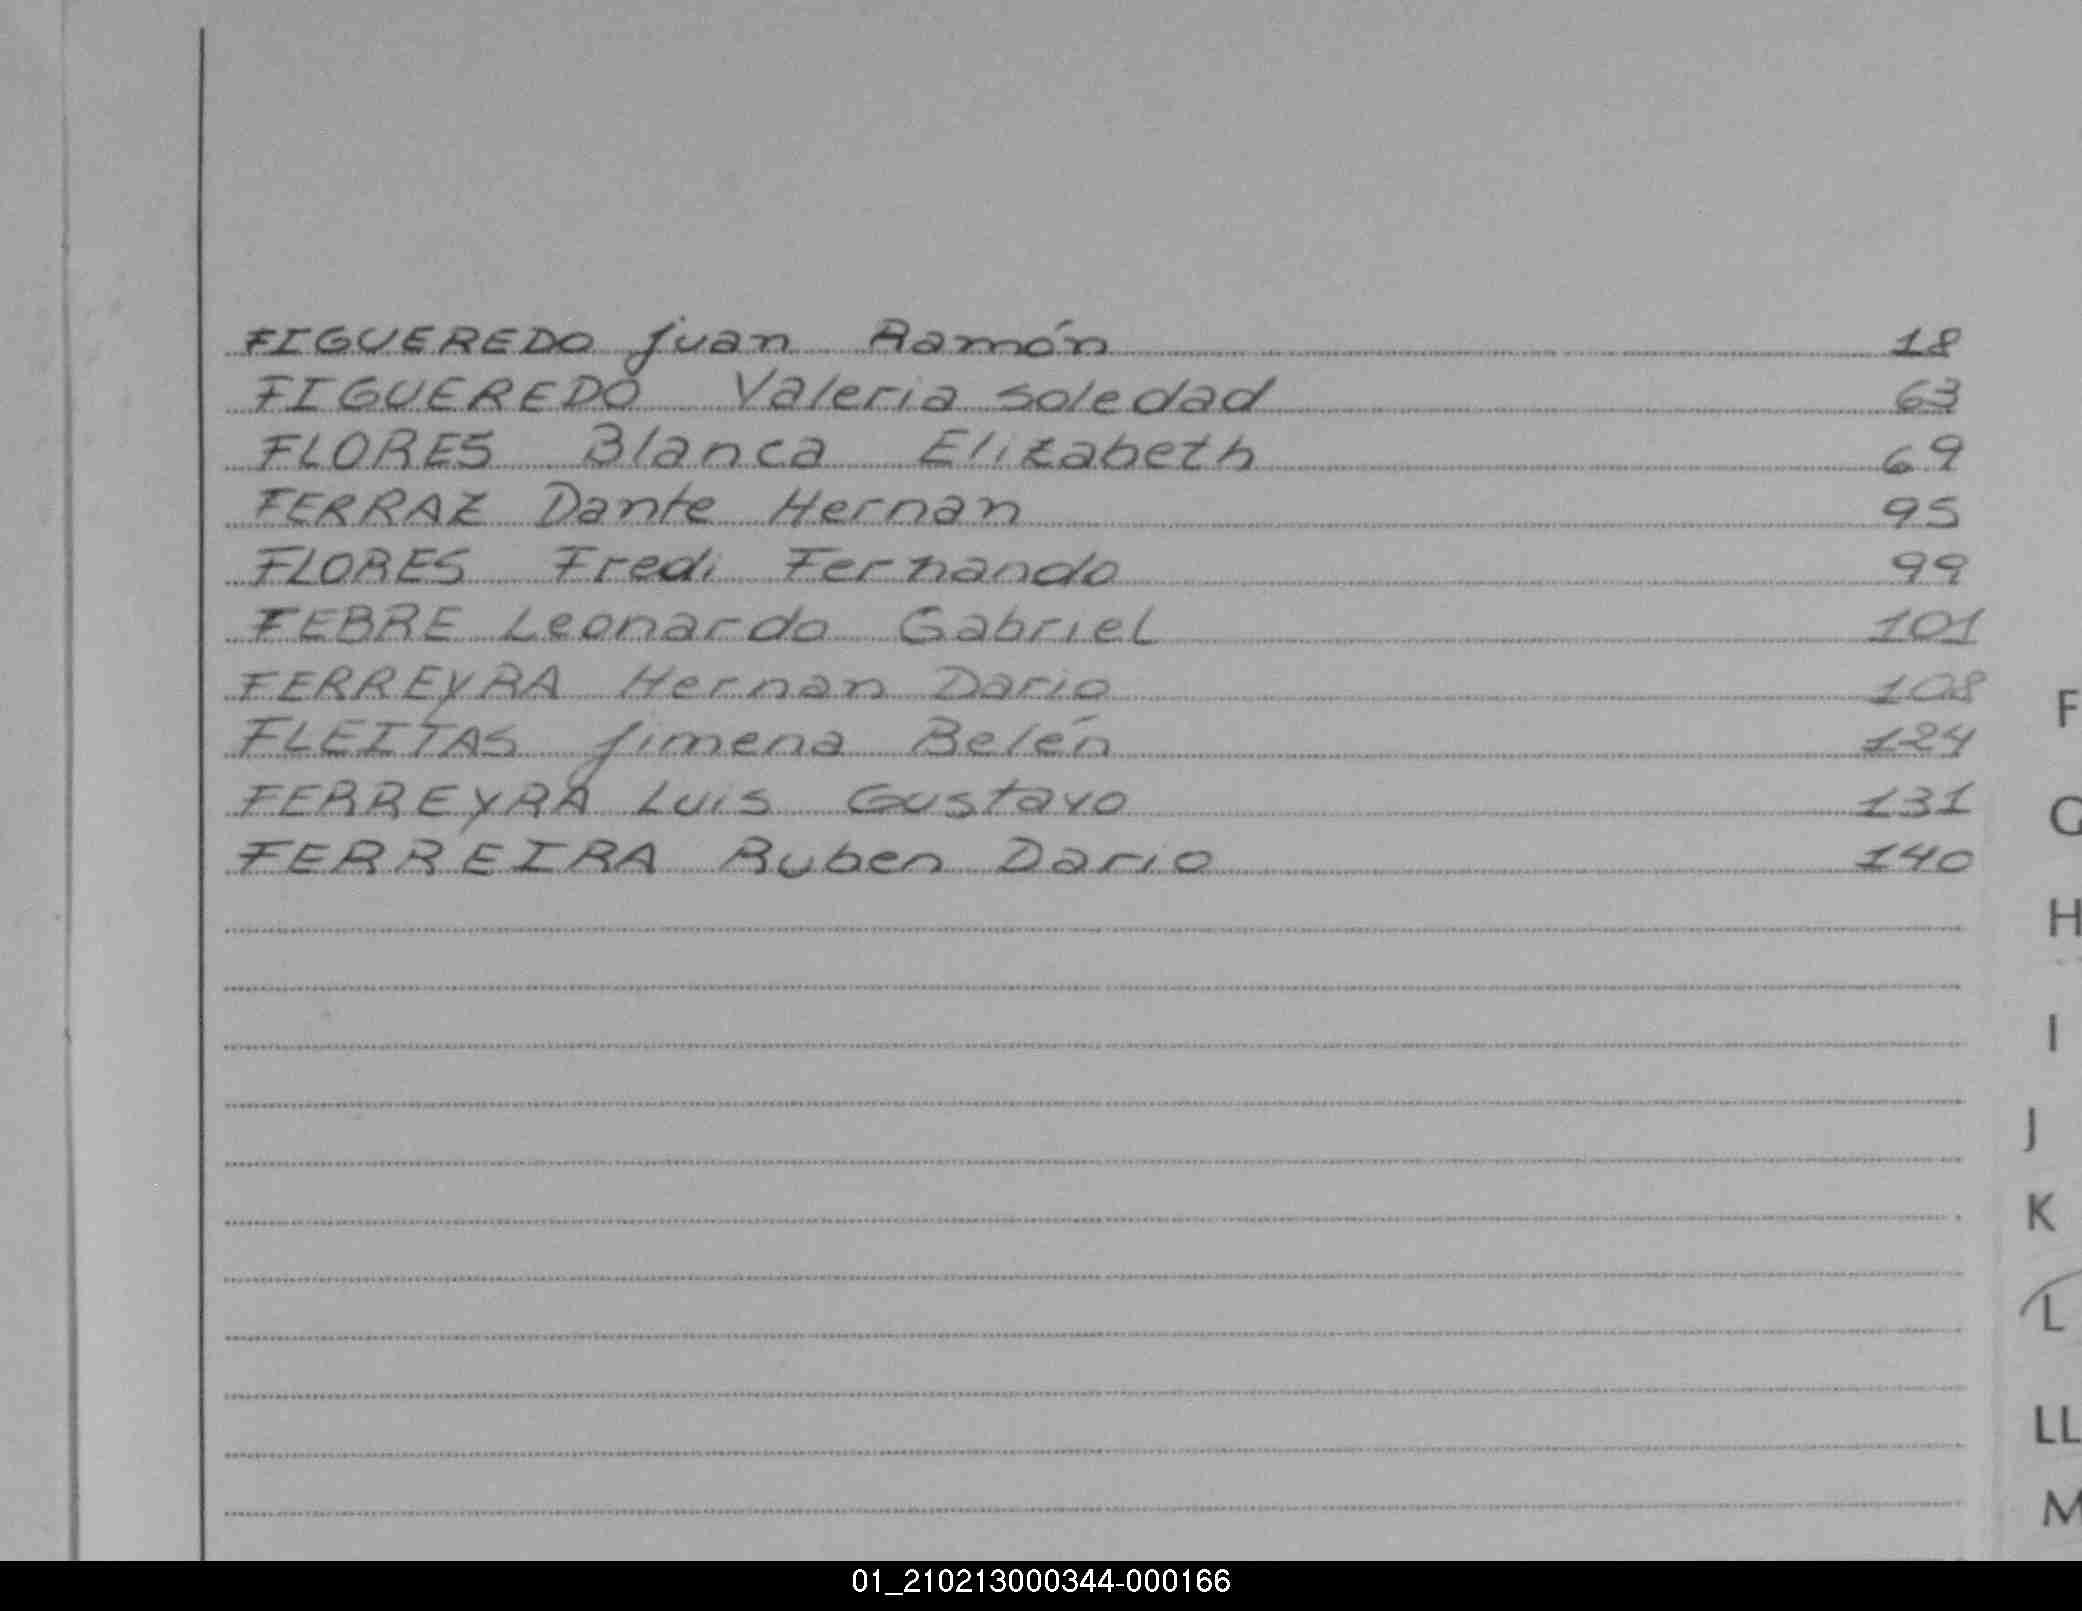 FIGUEREDO Juan Ramón 18
FIGUEREDO Valeria Soledad 63
FLORES Blanca Elizabeth 69
FERRAZ Dante Hernan 95
FLORES Fredi Fernando 99
FEBRE Leonardo Gabriel 101
FERREYRA Hernan Dario 108
FLEITAS Jimena Belén 124
FERREYRA Luis Gustavo 131
FERREIRA Ruben Dario 140
F
G
H
I
J
K
L
LL
M
01_210213000344-000166